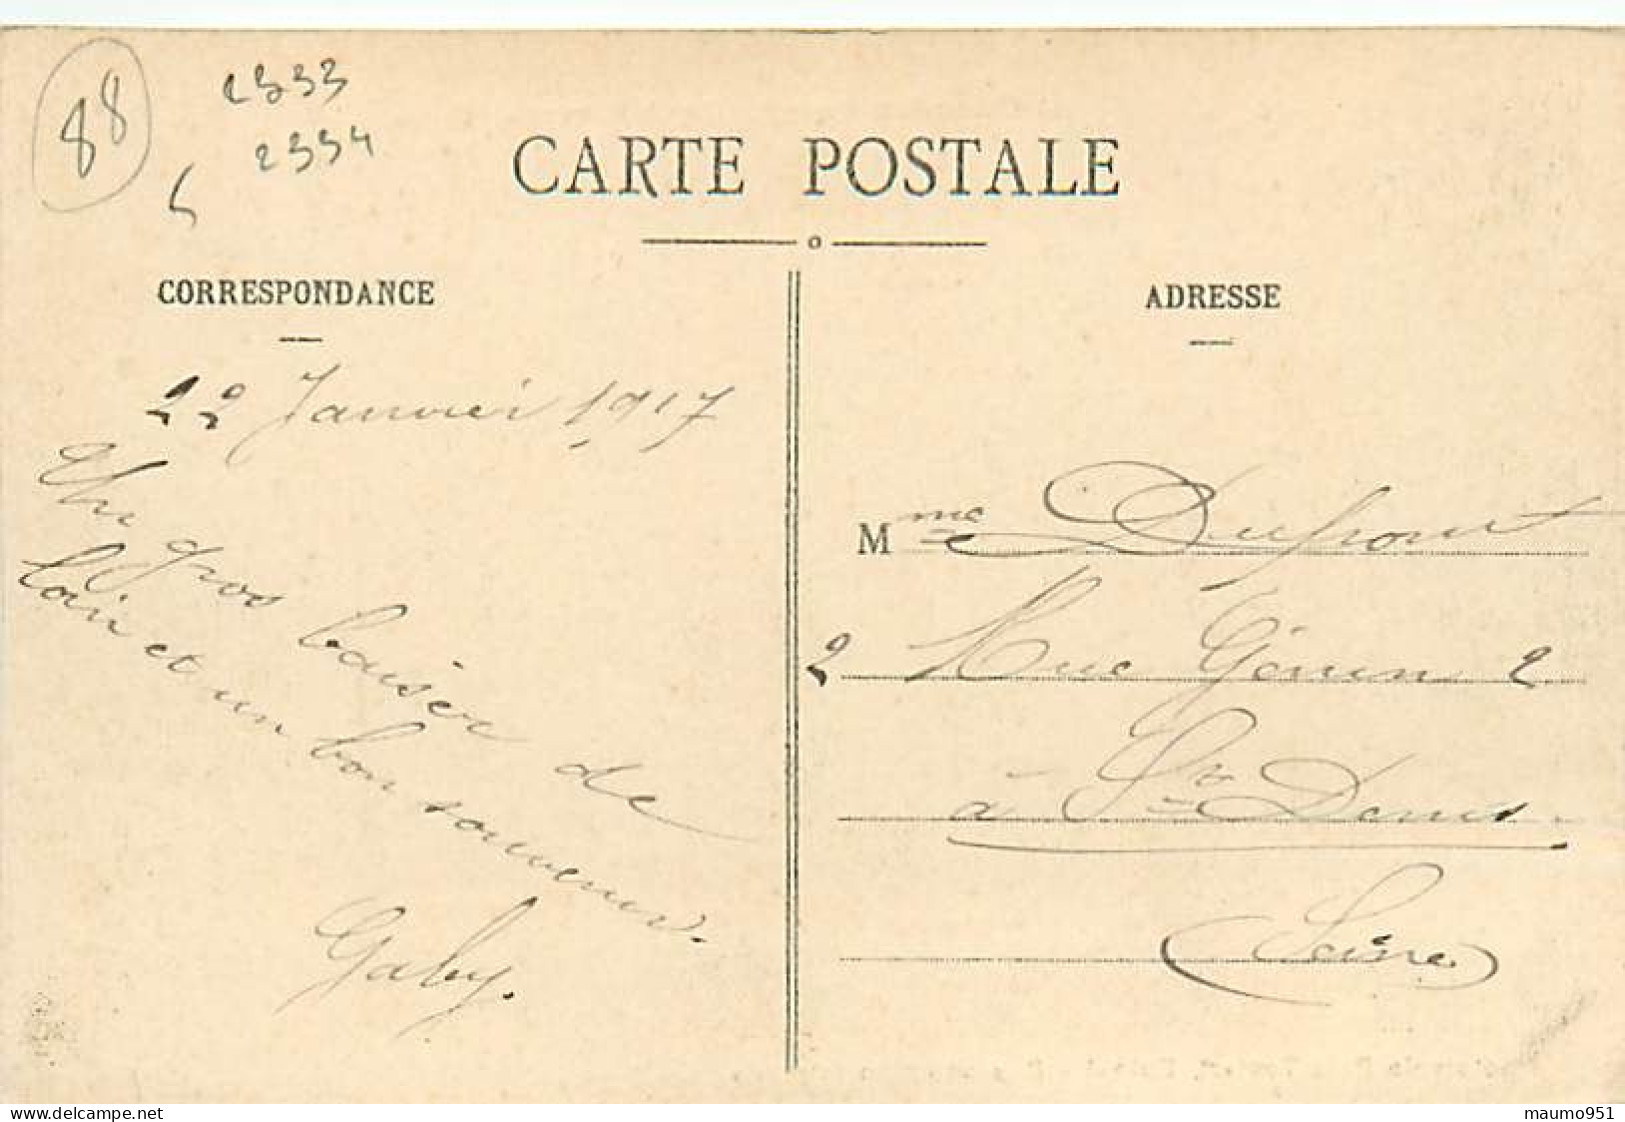 88
2333
2334
CARTE POSTALE
CORRESPONDANCE
ADRESSE
22 Janvier 1917
Un gros baiser de
loin et un bon souvenir.
Gaby.
Mme Dupont
2 Rue Génin 2
à St Denis.
(Seine)
www.delcampe.net
maumo951